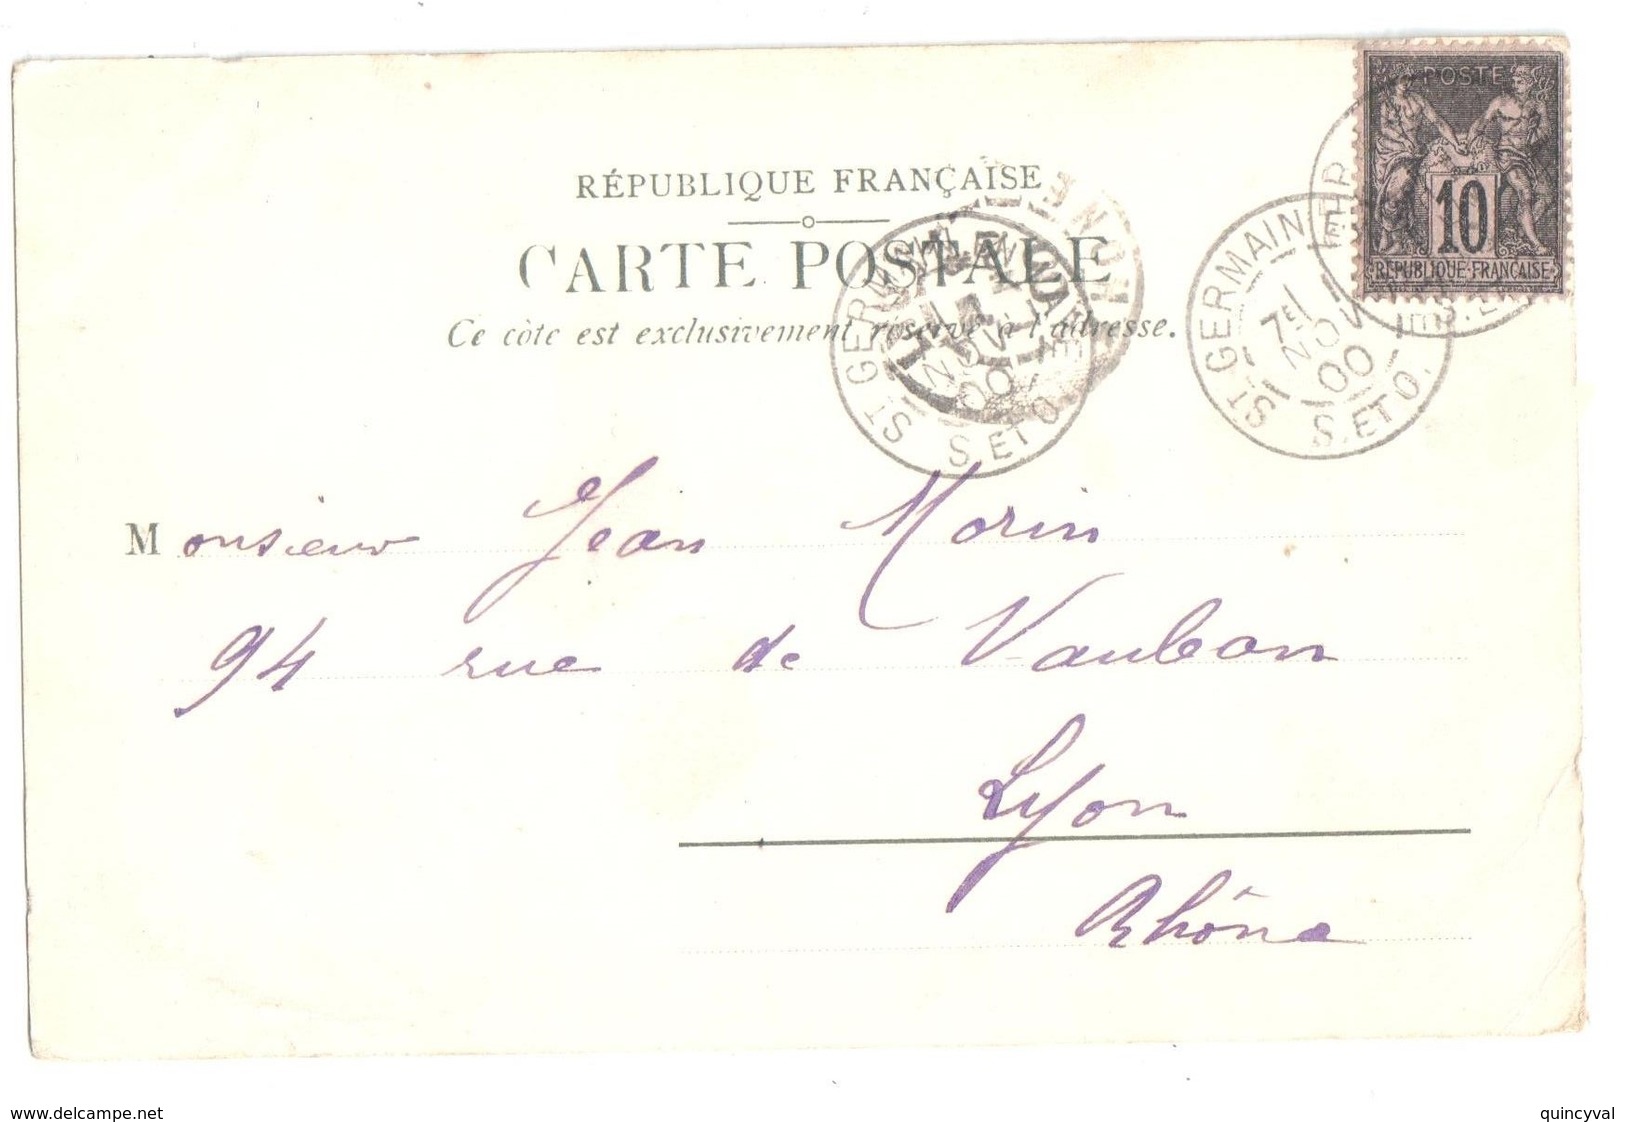 POSTE
10
RÉPUBLIQUE FRANÇAISE
RÉPUBLIQUE FRANÇAISE
CARTE POSTALE
Ce côté est exclusivement réservé à l'adresse.
ST GERMAIN EN LAYE
7E 1
NOV
00
S. ET O.
ST GERMAIN
7E 1
NOV
00
S. ET O.
Monsieur Jean Morin
94 rue de Vauban
Lyon
Rhône
www.delcampe.net
quincyval